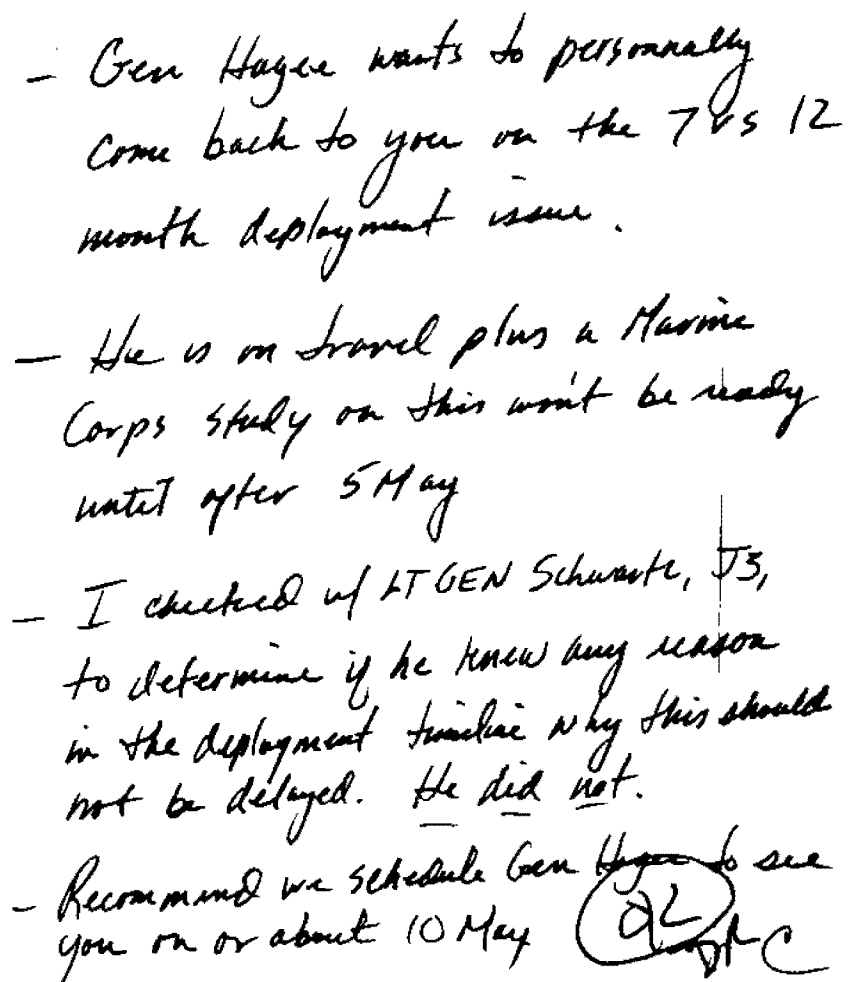 - Gen Hagee wants to personnally
come back to you on the 7 vs 12
month deployment issue.
- He is on travel plus a Marine
Corps study on this won't be ready
until after 5 May
- I checked w/ LTGEN Schwartz, J3,
to determine if he knew any reason
in the deployment timeline why this should
not be delayed. He did not.
- Recommend we schedule Gen Hagee to see
you on or about 10 May